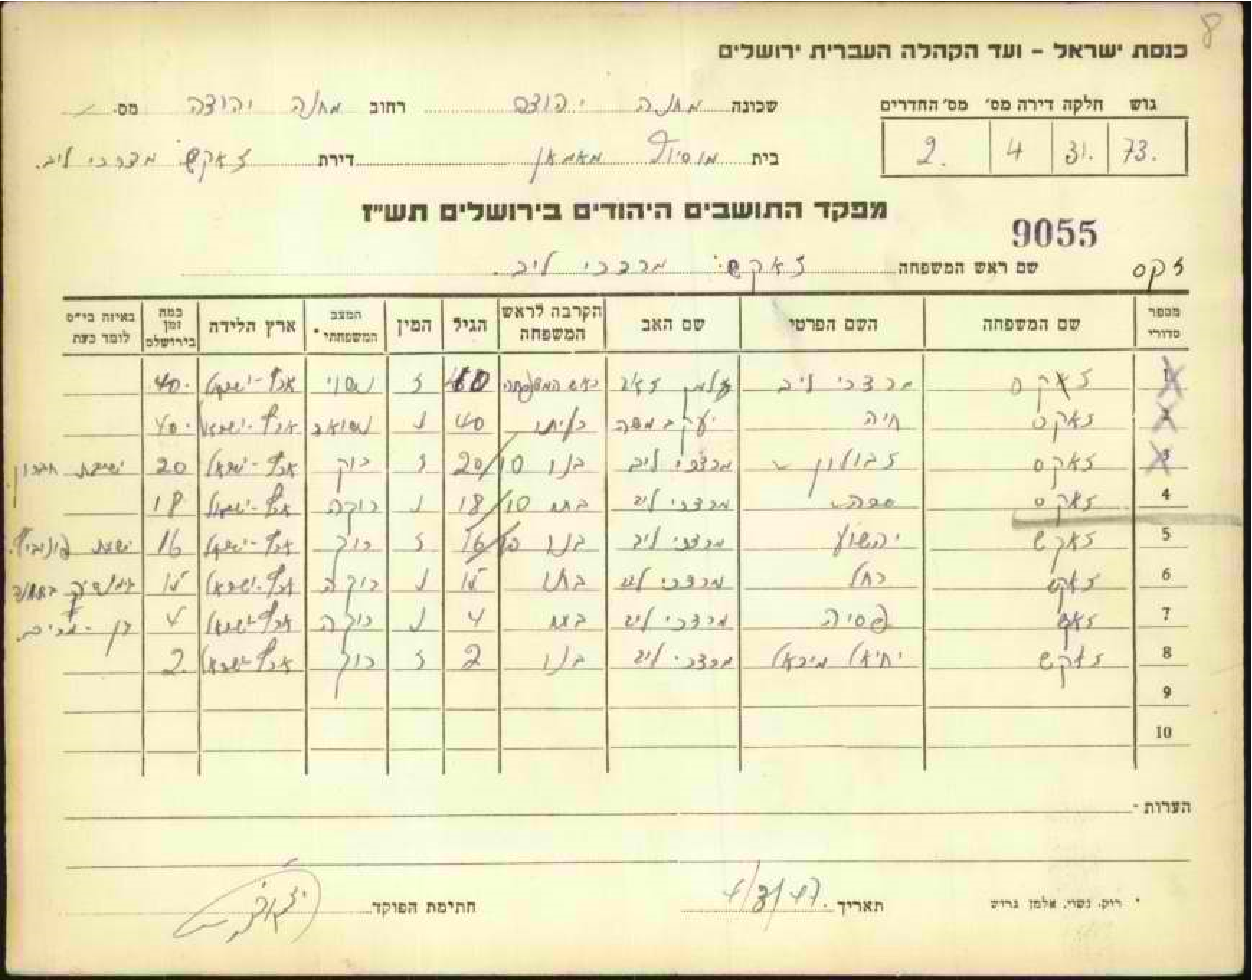 8
כנסת ישראל – ועד הקהלה העברית ירושלים
גוש חלקה דירה מס' מס' החדרים
73. 31. 4 2.
שכונה מחנה יהודה רחוב מחנה יהודה מס.
בית מאמאן דירת זאקס מרדכי ליב.
מפקד התושבים היהודים בירושלים תש"ז
9055
זקס
שם ראש המשפחה זאקש מרדכי ליב.
מספר סדורי שם המשפחה השם הפרטי שם האב הקרבה לראש המשפחה הגיל המין המצב המשפחתי * ארץ הלידה כמה זמן בירושלם באיזה בי"ס לומד כעת
1 זאקס מרדכי ליב זלמן זאב ראש המשפחה 40 ז נשוי ארץ-ישראל 40.
2 זאקס חיה יעקב משה אשתו 40 נ נשואה ארץ-ישראל 40.
3 זאקס זבולון מרדכי ליב בנו 20/10 ז רוק ארץ-ישראל 20 ישיבת חברון
4 זאקס שרה מרדכי ליב בתו 18/10 נ רוקה ארץ-ישראל 18
5 זאקש יהושע מרדכי ליב בנו 16/10 ז רוק ארץ-ישראל 16 ישיבת
6 זאקש רחל מרדכי ליב בתו נ רוקה ארץ-ישראל
7 זאקש פסיה מרדכי ליב בתו 4 נ רוקה ארץ-ישראל 4 גן
8 זאקש יחיאל מיכאל מרדכי ליב בנו 2 ז רוק ארץ-ישראל 2.
9
10
הערות -
* רוק, נשוי, אלמן גרוש תאריך 4/3/47. חתימת הפוקד